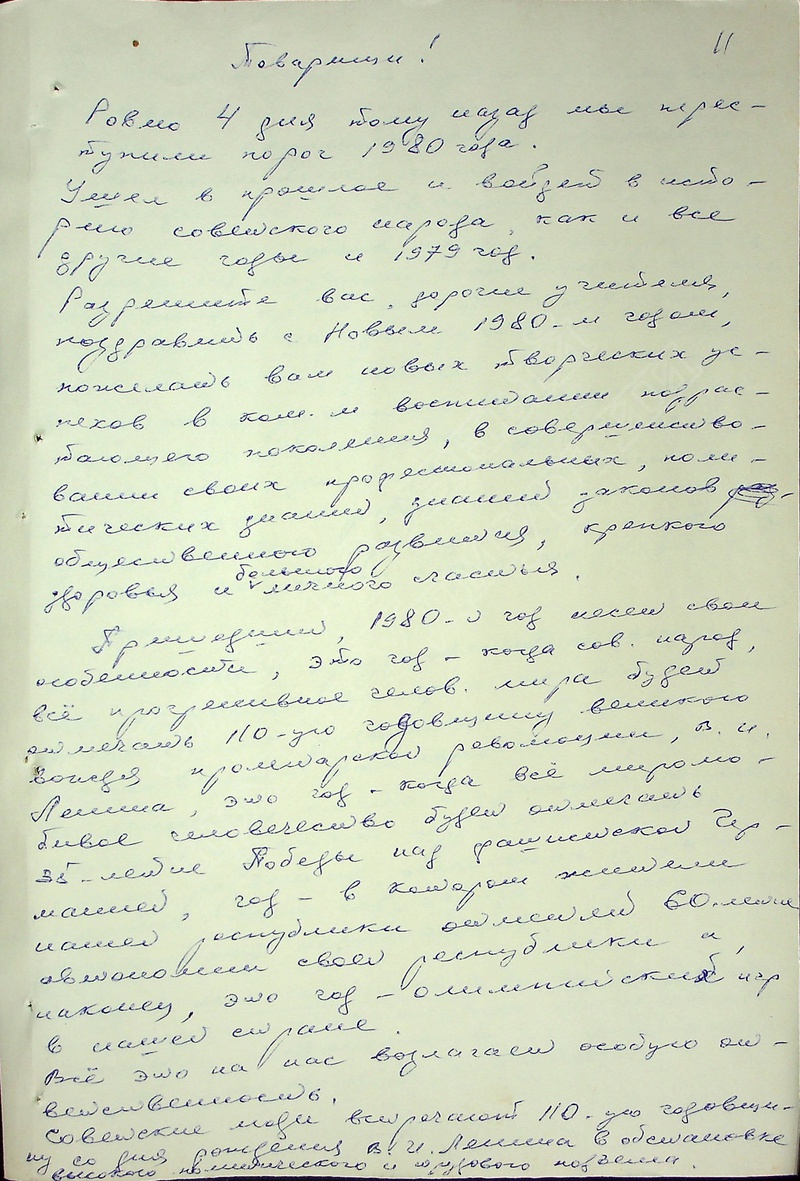 11
Товарищи!
Ровно 4 дня тому назад мы перес-
тупили порог 1980 года.
Ушел в прошлое и войдет в исто-
рию советского народа, как и все
другие годы и 1979 год.
Разрешите вас, дорогие учителя,
поздравить с Новым 1980-м годом,
пожелать вам новых творческих ус-
пехов в ком. м воспитании подрас-
тающего поколения, в совершенство-
вании своих профессиональных, поли-
тических знаний, знаний законов
общественного развития, крепкого
здоровья и большого личного счастья.
Пришедший, 1980-й год несет свои
особенности, это год - когда сов. народ,
всё прогрессивное челов. мира будет
отмечать 110-ую годовщину великого
вождя пролетарской революции, В. И.
Ленина, это год - когда всё миролю-
бивое человечество будет отмечать
35-летие Победы над фашистской Гер-
манией, год - в котором жители
нашей республики отметят 60-летие
автономии своей республики и,
наконец, это год - олимпийских игр
в нашей стране.
Всё это на нас возлагает особую от-
ветственность.
Советские люди встречают 110-ую годовщи-
ну со дня рождения В. И. Ленина в обстановке
высокого политического и трудового подъема.